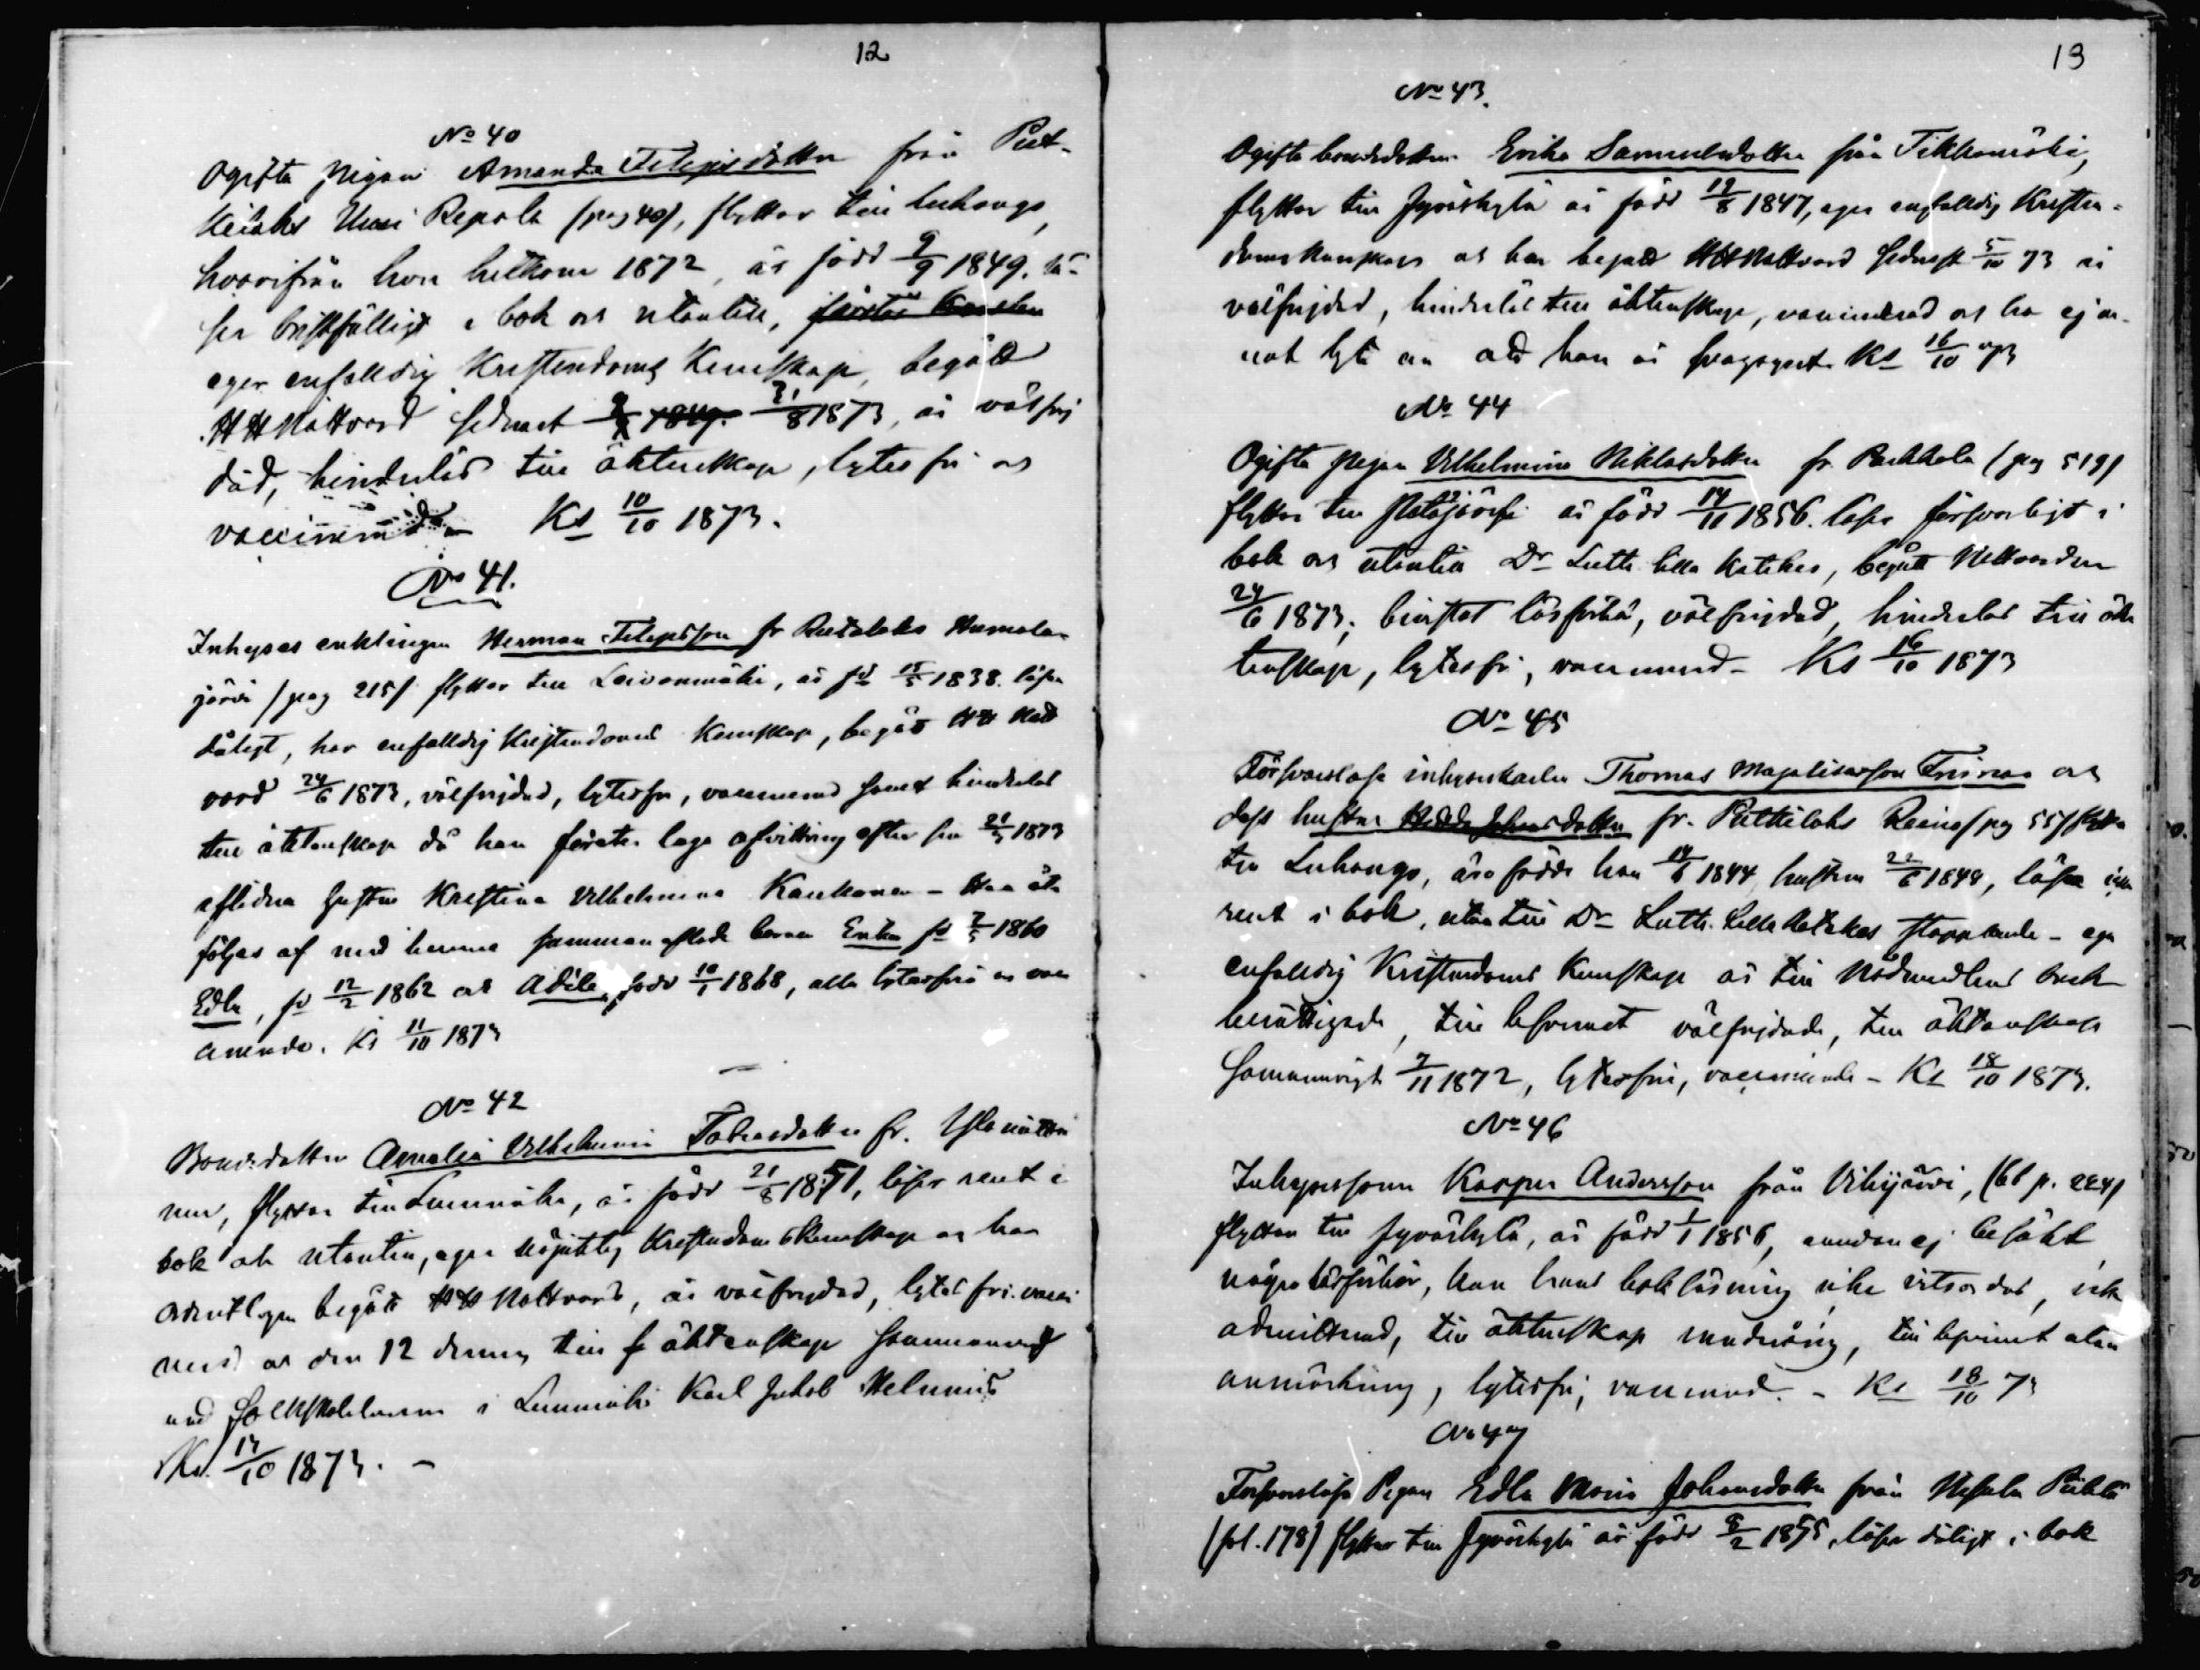 12
No 40
Ogifta pigan Amanda Filipsdotter från Put-
kilaks Uusi Repola (pag 40), flyttar till Luhango,
hvarifrån hon hitkom 1872, är född 9/9 1849, lä-
ser bristfälligt i bok och utantill, förstår
eger enfaldig Kristendoms Kunskap, begått
HH Nattvard sednast 9/9 1849. 31/8 1873, är välfrej
dad, hinderlös till äktenskap, lytesfri och
vaccinerad Ks 10/10 1873.
No 41.
Inhyses enklingen Herman Filipsson fr Rutalaks Humala-
järvi (pag 215) flyttar till Leivonmäki, är fd 15/5 1838. läser
dåligt, har enfaldig Kristendoms Kunskap, begått HH Natt
vard 24/6 1873, välfrejdad, lytesfri, vaccinerad samt hinderlös
till äktenskap då han företer laga afvittring efter sin 21/3 1873
aflidna hustru Kristina Vilhelmina Kaukonen - Han åt-
följes af med henne sammanaflade barnen Erika fd 7/5 1860
Edla, fd 12/2 1862 och Adile, född 10/1 1868, alla lytesfria o vac
cinerade. Ks 11/10 1873
No 42
Bondedottern Amalia Vilhelmina Tobiasdotter fr.
nen, flyttar till Lumimäki, är född 21/8 1851, läser rent i
bok och utantill, eger nöjaktig Kristendomskunskap och har
ordentligen begått HH Nattvard, är välfrejdad, lytesfri. vacci
nerad och den 12 dennes till äktenskap sammanvigd
med folkskoleläraren i Lumimäki Karl Jakob Melunius
Ks. 13/10 1873. -
13
No 43.
Ogifta bondedottern Erika Samuelsdotter från Tikkamäki,
flyttar till Jyväskylä är född 19/8 1847, eger enfaldig Kristen-
domskunskap och har begått HH Nattvard sednast 5/10 73 är
välfrejdad, hinderlös till äktenskap, vaccinerad och har ej an-
nat lyte än att hon är svagsynt. Ks 16/10 73
No 44
Ogifta pigan Vilhelmina Niklasdotter fr. Parkkola (pag 519)
flyttar till Petäjävesi är född 14/11 1856. läser försvarligt i
bok och utantill Dr Luth. lilla Katekes, begått Nattvarden
24/6 1873, bevistat läsförhör, välfrejdad, hinderlös till äk-
tenskap, lytesfri, vaccinerad - Ks 16/10 1873
No 45
Försvarslöse inhyseskarlen Thomas Majalisasson Friman och
dess hustru Hedda Johansdotter fr. Puttilaks Reino (pag 55) flytta
till Luhango, äro födde han 14/6 1844, hustrun 22/6 1849, läsa icke
rent i bok, utantill Dr Luth. Lilla Katekes stappande - ega
enfaldig Kristendoms Kunskap är till Nådmedlens bruk
berättigade, till lefvernet välfrejdade, till äktenskap
Sammanvigda 7/11 1872, lytesfria, vaccinerade - Ks 18/10 1873.
No 46
Inhysessonen Kasper Andersson från Vihijärvi, (bl p. 224)
flyttar till Jyväskylä, är född 1/1 1856, emedan ej besökt
några läsförhör, kan hans bokläsning icke vitsordas, icke
admitterad, till äktenskap underårig, till lefvernet utan
anmärkning, lytesfri, vaccinerad. - Ks 18/10 73
No 47
Försvarslösa Pigan Edla Maria Johansdotter från Pukila
(fol. 178) flyttar till Jyväskylä är född 8/2 1855, läser dåligt i bok